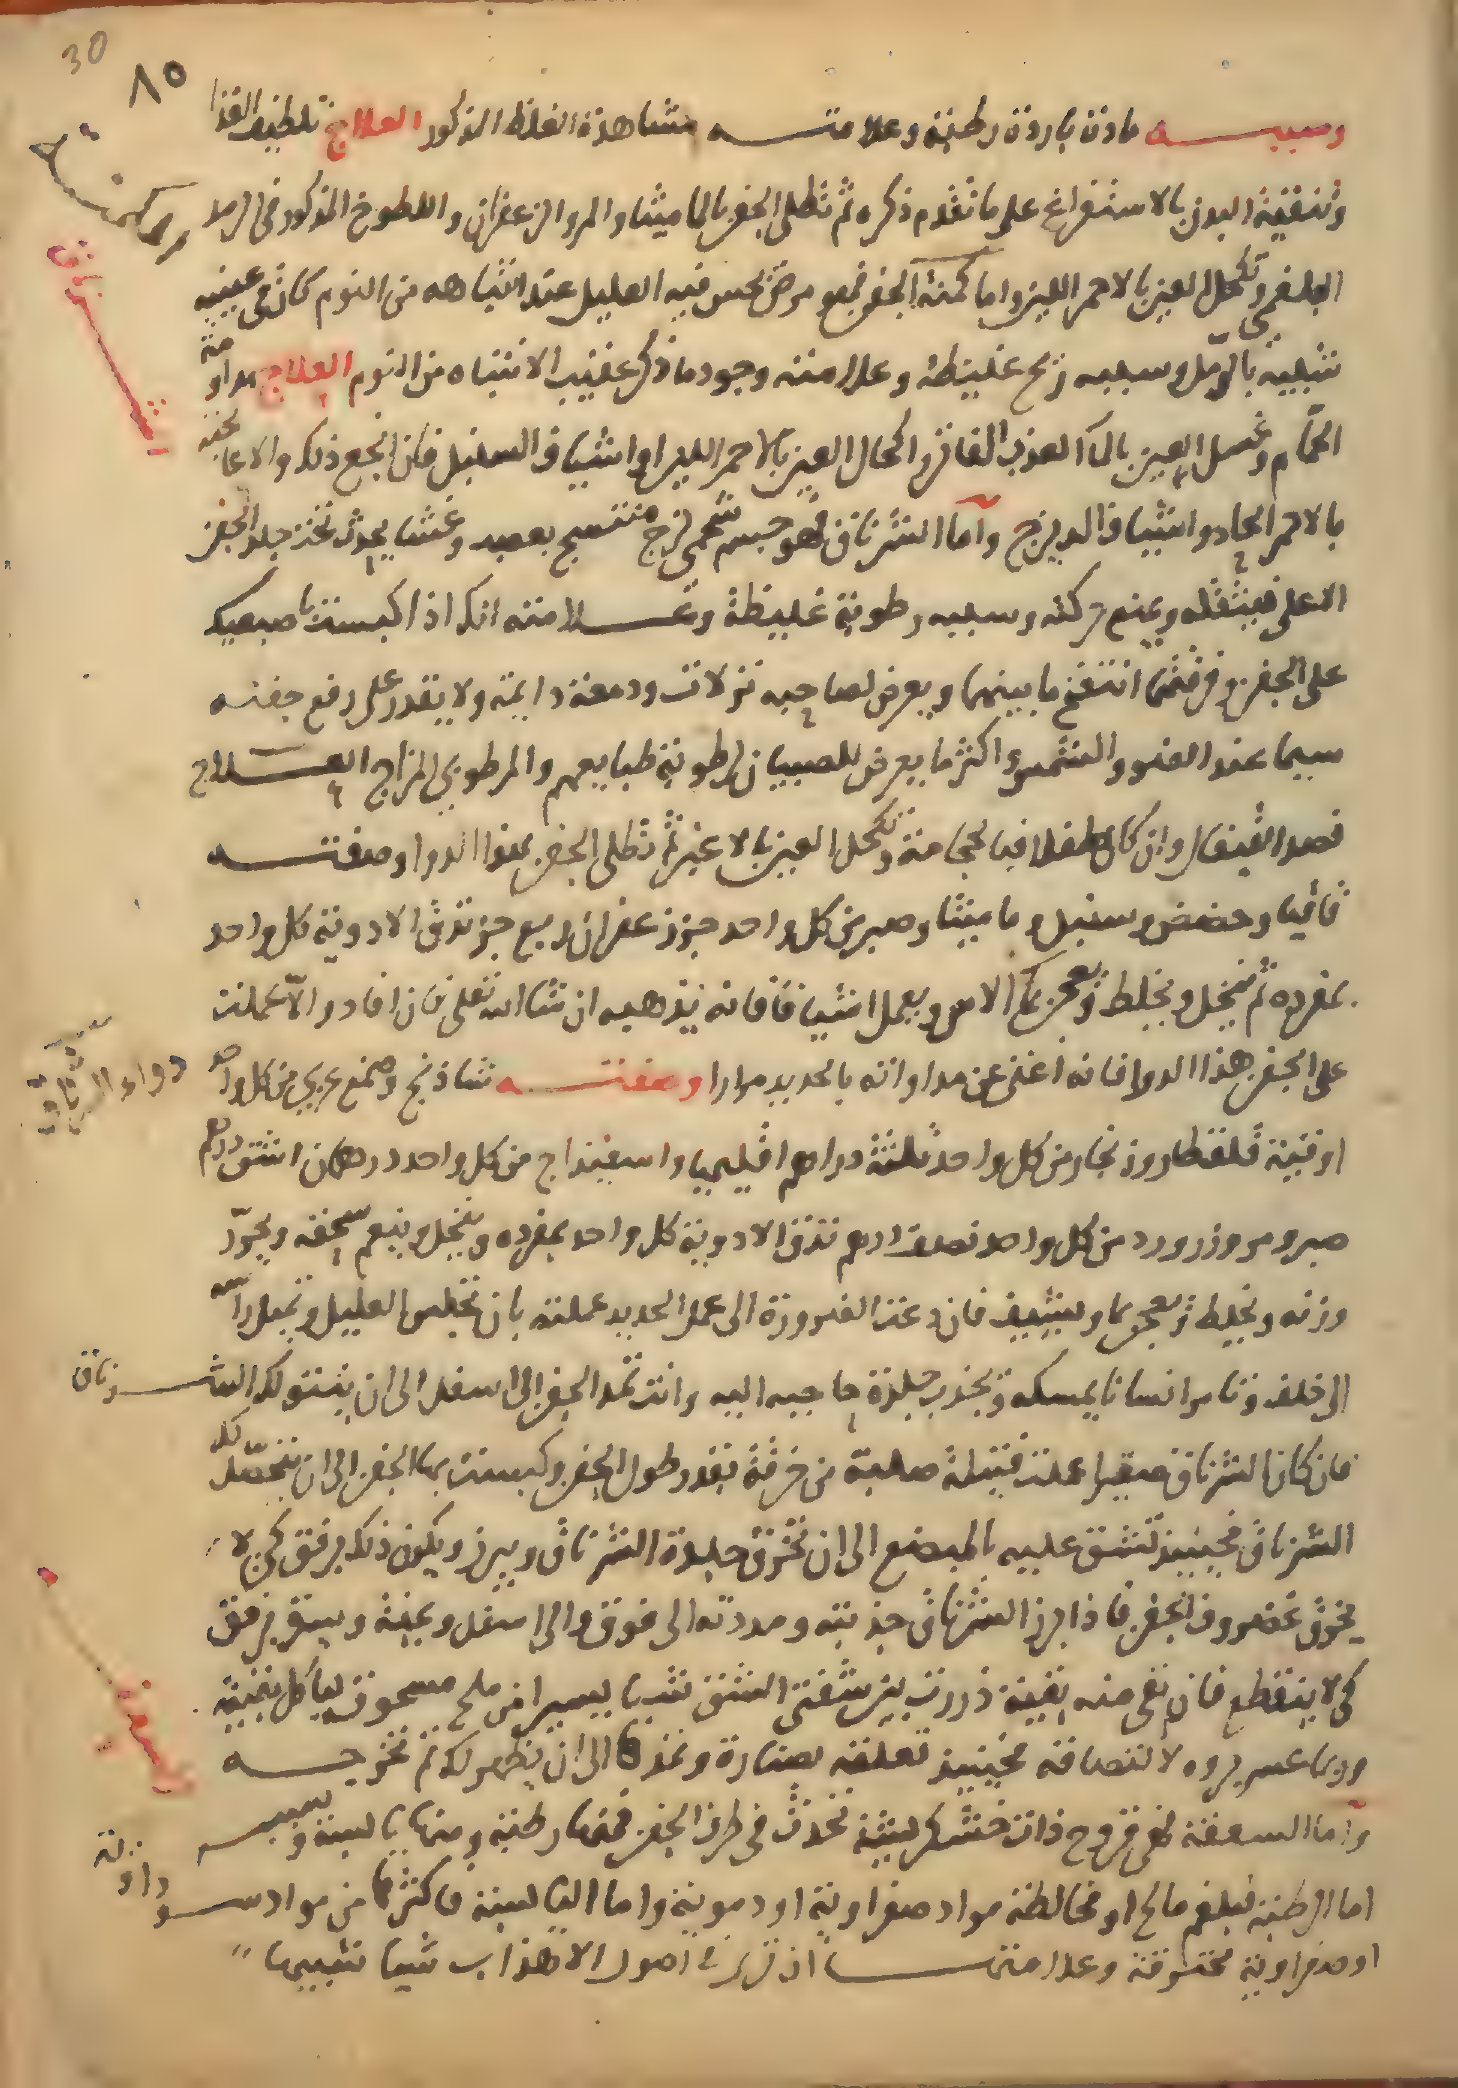 30
٨٥
وسببه مادة باردة رطبة وعلامته مشاهدة الغلظ المذكور العلاج تلطيف الغذا
وتنقية البدن بالاستفراغ على ما تقدم ذكره ثم تطلى الجفن بالماميثا والمر والزعفران واللطوخ المذكور في الرمد
البلغمي وتكحل العين بالاحمر اللين واما كمنة الجفن فهو مرض يحس فيه العليل عند انتباهه من النوم كان في عينيه
شبيه بالرمل وسببه ريح غليظة وعلامته وجود ما ذكر عقيب الانتباه من النوم العلاج مداومة
الحمام وغسل العين بالماء العذب الفاتر واكحال العين بالاحمر اللين او اشياف السنبل فان انجع ذلك والا عالجته
بالاحمر الحاد واشياف الديزج وأما الشرناق فهو جسم شحمي لزج منتسج بعصب وغشا يحدث تحت جلد الجفن
الاعلى فيثقله ويمنع حركته وسببه رطوبة غليظة وعلامته انك اذا كبست باصبعيك
على الجفن وفرقتهما انتفخ ما بينهما ويعرض لصاحبه نزلات ودمعة دايمة ولا يقدر على رفع جفنه
سيما عند الضو والشمس واكثر ما يعرض للصبيان لرطوبة طبايعهم والمرطوبي المزاج العلاج
فصد القيفال وان كان طفلا فبالحجامة وتكحل العين بالاغبر ثم تطلى الجفن بهذا الدوا وصفته
قاقيا وحضض وسنبل وماميثا وصبر من كل واحد جزو زعفران ربع جز تدق الادوية كل واحد
بمفرده ثم ينخل ويخلط ويعجن بماء الاس ويعمل اشيافا فانه يذهبه ان شا الله تعلى فان افاد والا عملت
على الجفن هذا الدوا فانه اغنى عن مداواته بالحديد مرارا وصفته شاذنج وصمغ عربي من كل واحد
اوقية قلقطار وزنجار من كل واحد ثلثة دراهم اقليميا واسفيداج من كل واحد درهمان اشق درهم
صبر ومر وزرورد من كل واحد نصف درهم تدق الادوية كل واحد بمفرده وينخل وينعم سحقه ويحرر
وزنه ويخلط ويعجن بما ويشيف فان دعت الضرورة الى عمل الحديد عملته بان تجلس العليل وتميل راسه
الى خلف وتامر انسانا يمسكه ويجذب جلدة حاجبه اليه وانت تمد الجفن الى اسفل الى ان يثبت لك الشرناق
فان كان الشرناق صغيرا عملت فتيلة صلبة من خرقة بقدر طول الجفن وكبست بها الجفن الى ان يتحصل لك
الشرناق فحينيذ تشق عليه بالمبضع الى ان تخرق جلدة الشرناق ويبرز ويكون ذلك برفق كي لا
يخرق غضروف الجفن فاذا برز الشرناق جذبته ومددته الى فوق والى اسفل ويمنة ويسرة برفق
كي لا ينقطع فان بقي منه بقية ذررت بين شفتي الشق شيا يسيرا من ملح مسحوق لياكل بقيته
وربما عسر بروه لالتصاقه فحينيذ تعلقه بصنارة وتمدها الى ان يظهر لك ثم تخرجه
وأما السعفة فهي قروح ذات خشكريشة تحدث في طرف الجفن فمنها رطبة ومنها يابسة وسببه
اما الرطبة فبلغم مالح او مخالطة مواد صفراوية او دموية واما اليابسة فاكثرها من مواد سوداوية
او صفراوية محترقة وعلامتها ان ترى في اصول الاهداب شيا شبيها
كمنة
شرناق
دواء الشرناق
سعفة